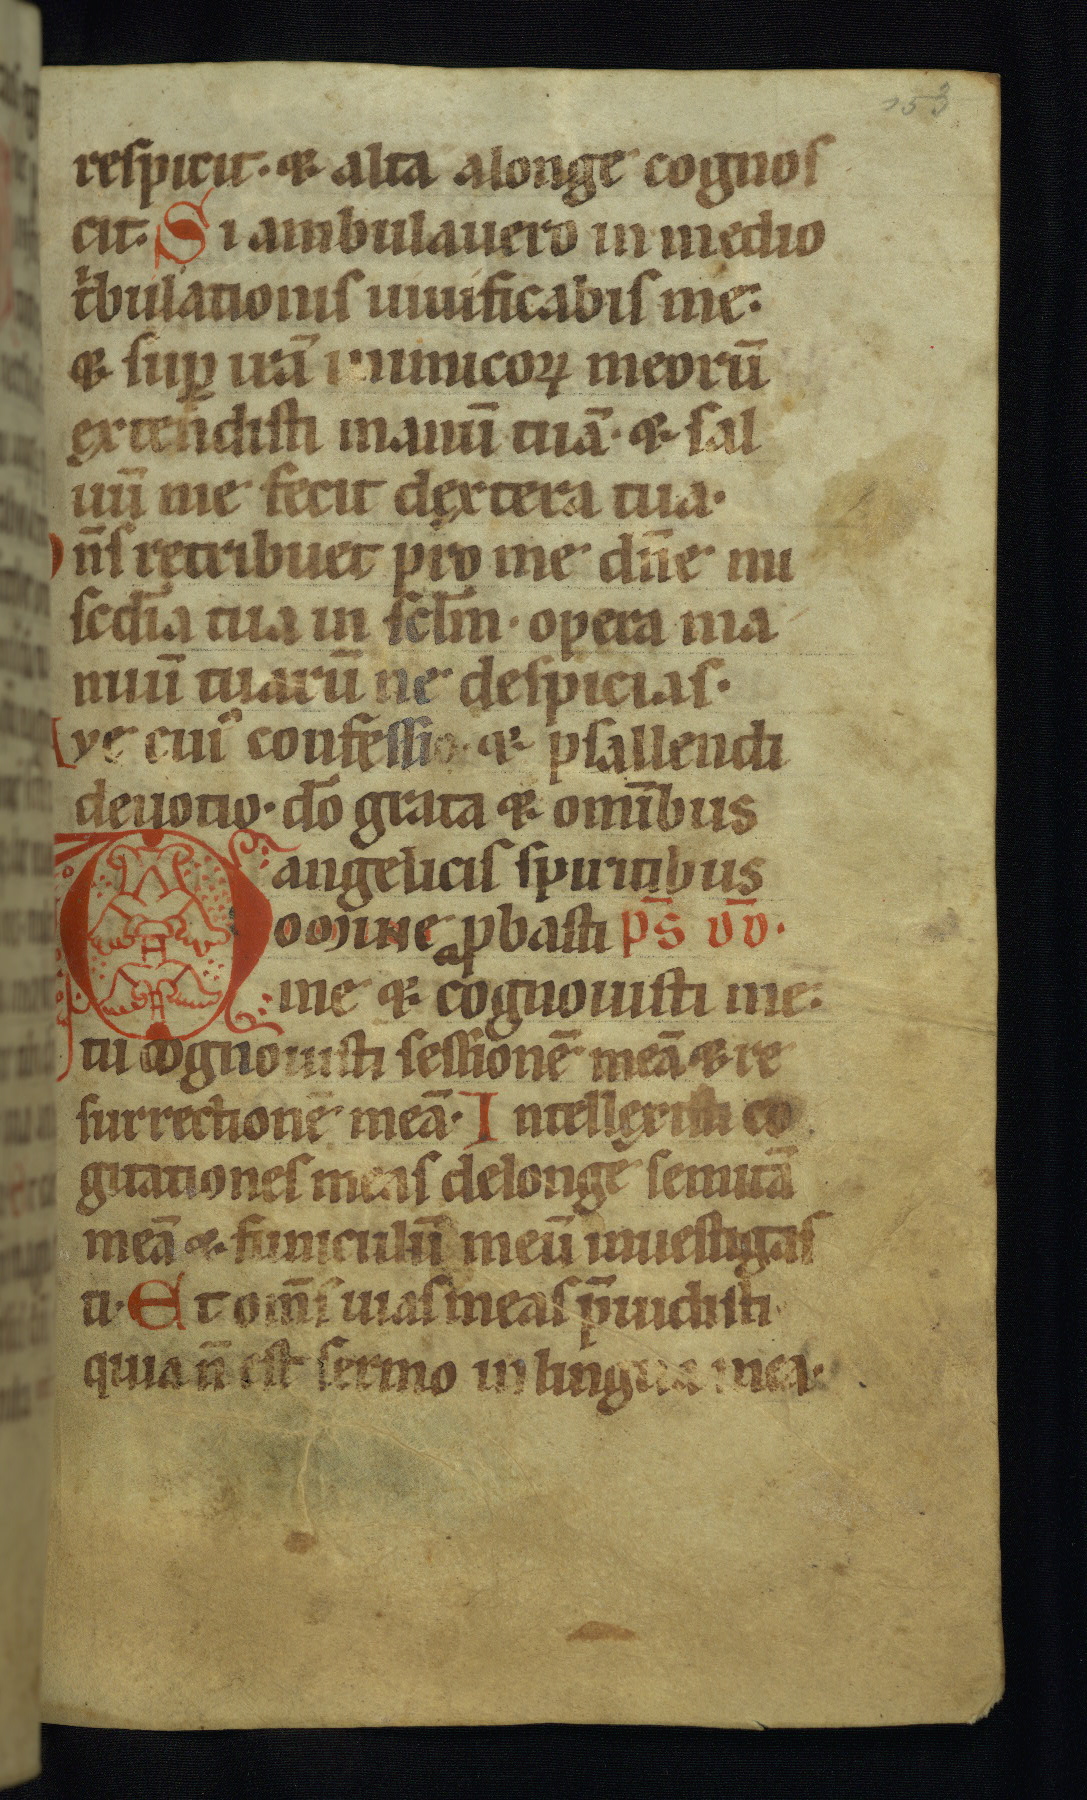 153
respicit. & alta alonge cognos
cit. Si ambulauero in medio
tⁱbulationis uiuificabis me:
& sup̱ irā inimicoꝝ meorū
extendisti manū tuā. & sal
uū me fecit dextera tua.
Dn̄s retribuet pro me dn̄e mi
scd̄ia tua in sclm̄. opera ma
nuū tuarū ne despicias.
Aye cui' confessio. & psallendi
deuotio. dō grata & omībus
angelicis spiritibus
Domine pbasti ps̄ dd̄.
me & cognouisti me:
tu cognouisti sessionē meā & re
surrectionē meā. Intellexisti co
gitationes meas delonge semitā
meā & funiculū meū inuestigas
ti. Et om̄s uias meas p̄uidisti
quia n̄ est sermo in lingua mea.